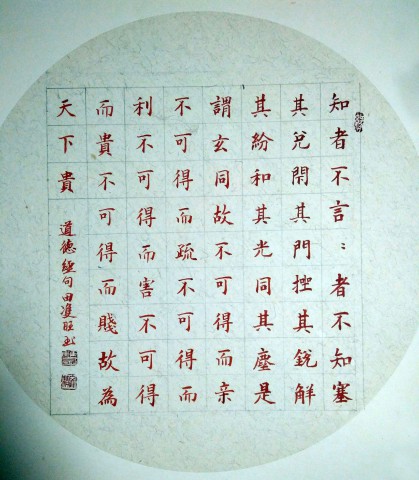 知者不言:者不知塞
其兌閇其門挫其銳解
其紛和其光同其塵是
謂玄同故不可得而亲
不可得而疏不可得而
利不可得而害不可得
而貴不可得而賤故為
天下貴
道德經句田旺书